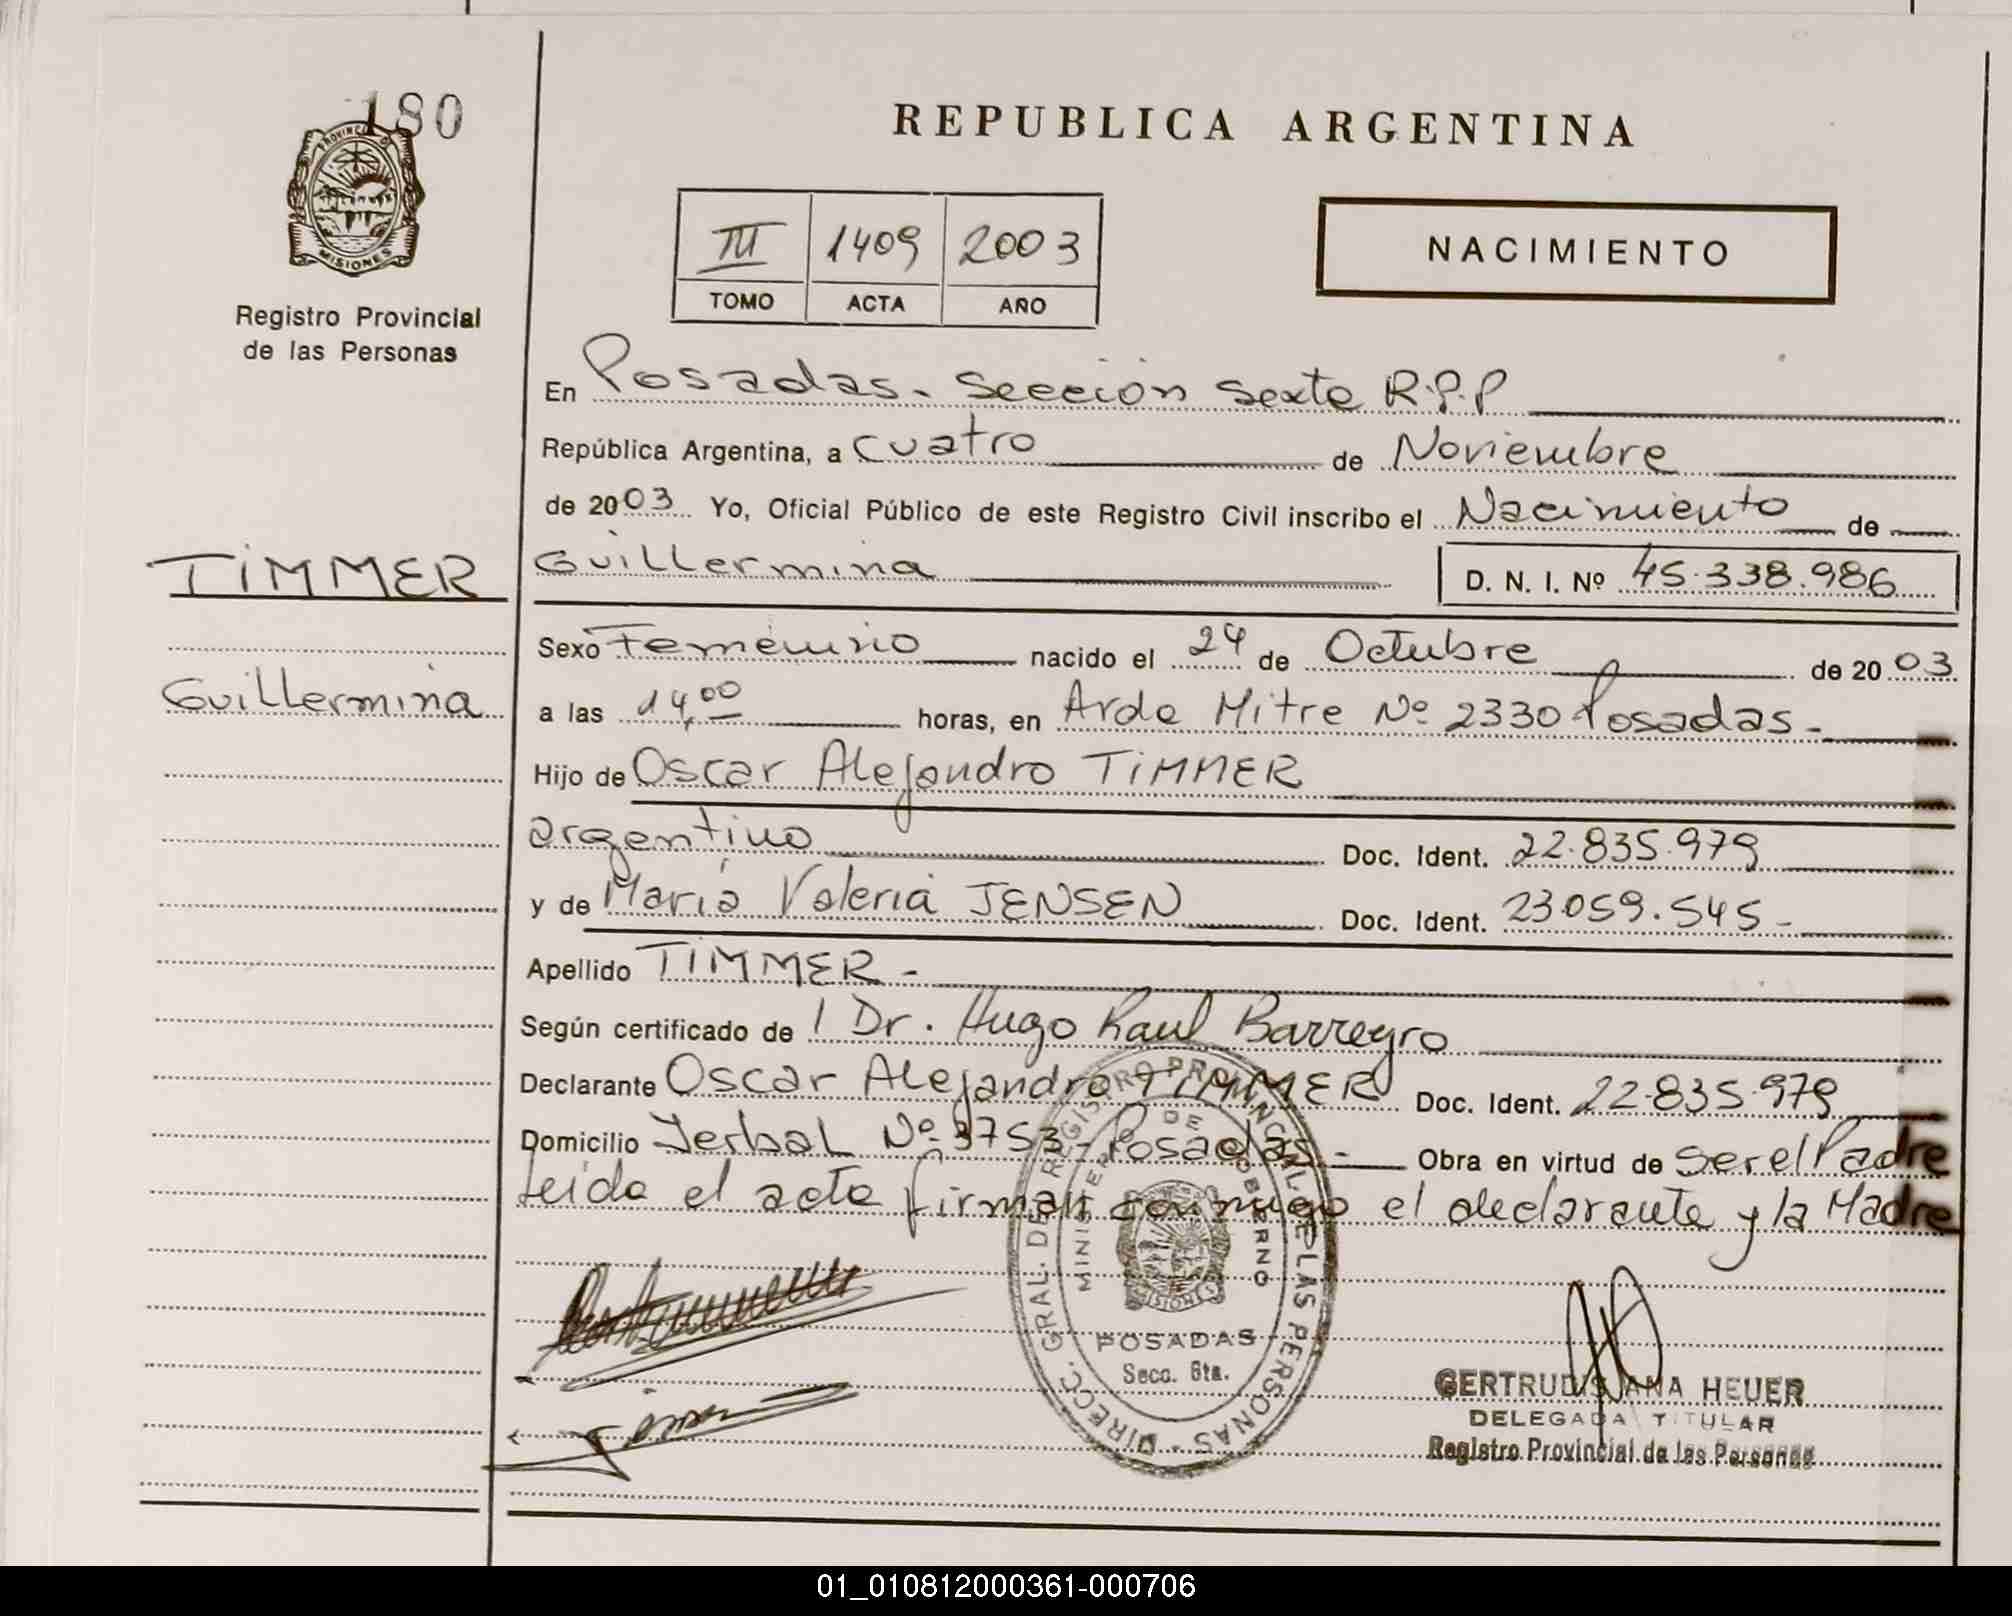 180
PROVINCIA DE
MISIONES
Registro Provincial
de las Personas
REPUBLICA ARGENTINA
III 1409 2003
TOMO ACTA AÑO
NACIMIENTO
En Posadas. Sección Sexta R.P.P
República Argentina, a cuatro de Noviembre
de 2003 Yo, Oficial Público de este Registro Civil inscribo el Nacimiento de
TIMMER
Guillermina
D. N. I. Nº 45.338.986
Guillermina
Sexo Femenino nacido el 24 de Octubre de 2003
a las 14,00 horas, en Avda Mitre Nº 2330 Posadas-
Hijo de Oscar Alejandro TIMMER
argentino Doc. Ident. 22.835.979
y de María Valeria JENSEN Doc. Ident. 23.059.545-
Apellido TIMMER-
Según certificado de l Dr. Hugo Raul Barreyro
Declarante Oscar Alejandro TIMMER Doc. Ident. 22.835.979
Domicilio Yerbal Nº 3753-Posadas- Obra en virtud de ser el Padre
Leída el acta firman conmigo el declarante y la Madre
DIRECC. GRAL. DE REGISTRO PROVINCIAL DE LAS PERSONAS
MINISTERIO DE GOBIERNO
MISIONES
POSADAS
Secc. 6ta.
GERTRUDIS ANA HEUER
DELEGADA TITULAR
Registro Provincial de las Personas
01_010812000361-000706